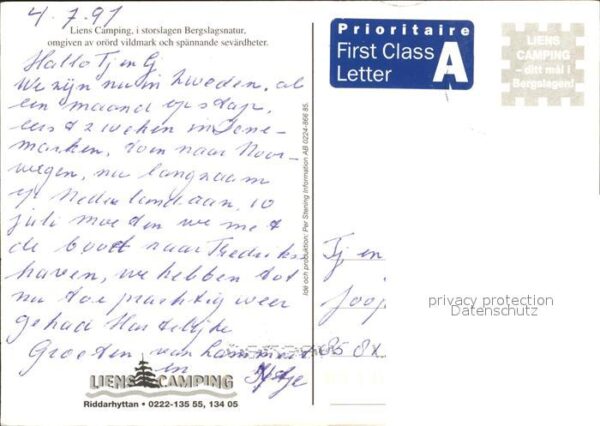 4.7.97
Liens Camping, i storslagen Bergslagsnatur,
omgiven av orörd vildmark och spännande sevärdheter.
Hallo Tj en G
We zijn nu in Zweden, al
een maand op stap,
eerst 2 weken in Dene-
marken, toen naar Noor-
wegen, nu langzaam
op Nederland aan, 10
juli moeten we met
de boot naar Fredriks
haven, we hebben tot
nu toe prachtig weer
gehad Hartelijke
Groeten van
en
LIENS CAMPING
Riddarhyttan • 0222-135 55, 134 05
Idé och produktion: Per Stening Information AB 0224-866 85.
Prioritaire
First Class
Letter
A
LIENS
CAMPING
– ditt mål i
Bergslagen!
Tj en
Joop
privacy protection
Datenschutz
85 8